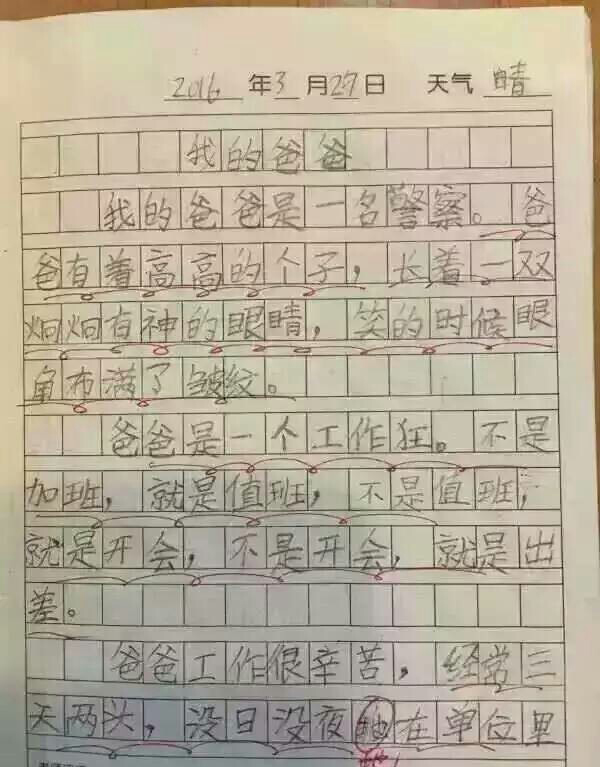 2016 年 3 月 27 日 天气 晴
我的爸爸
我的爸爸是一名警察。爸
爸有着高高的个子，长着一双
炯炯有神的眼睛，笑的时候眼
角布满了皱纹。
爸爸是一个工作狂。不是
加班，就是值班，不是值班，
就是开会，不是开会，就是出
差。
爸爸工作很辛苦，经常三
天两头，没日没夜在单位里